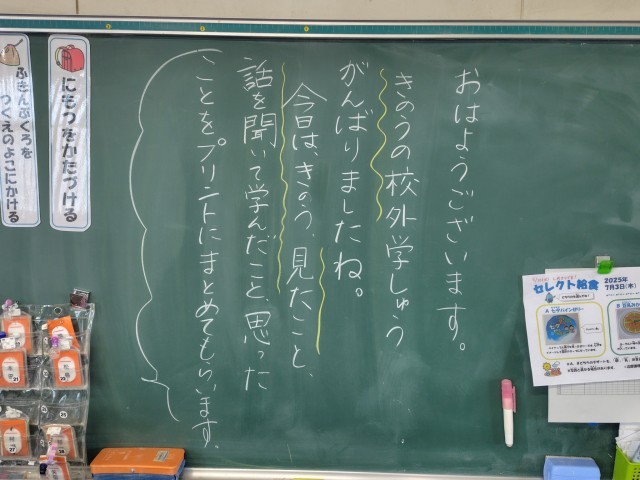 おはようございます。
きのうの校外学しゅう
がんばりましたね。
今日は、きのう、見たこと
話を聞いて学んだこと、思った
ことをプリントにまとめてもらいます。
にもつをかたづける
ふきんぶくろを
つくえのよこにかける
セレクト給食
2025年
7月3日(木)